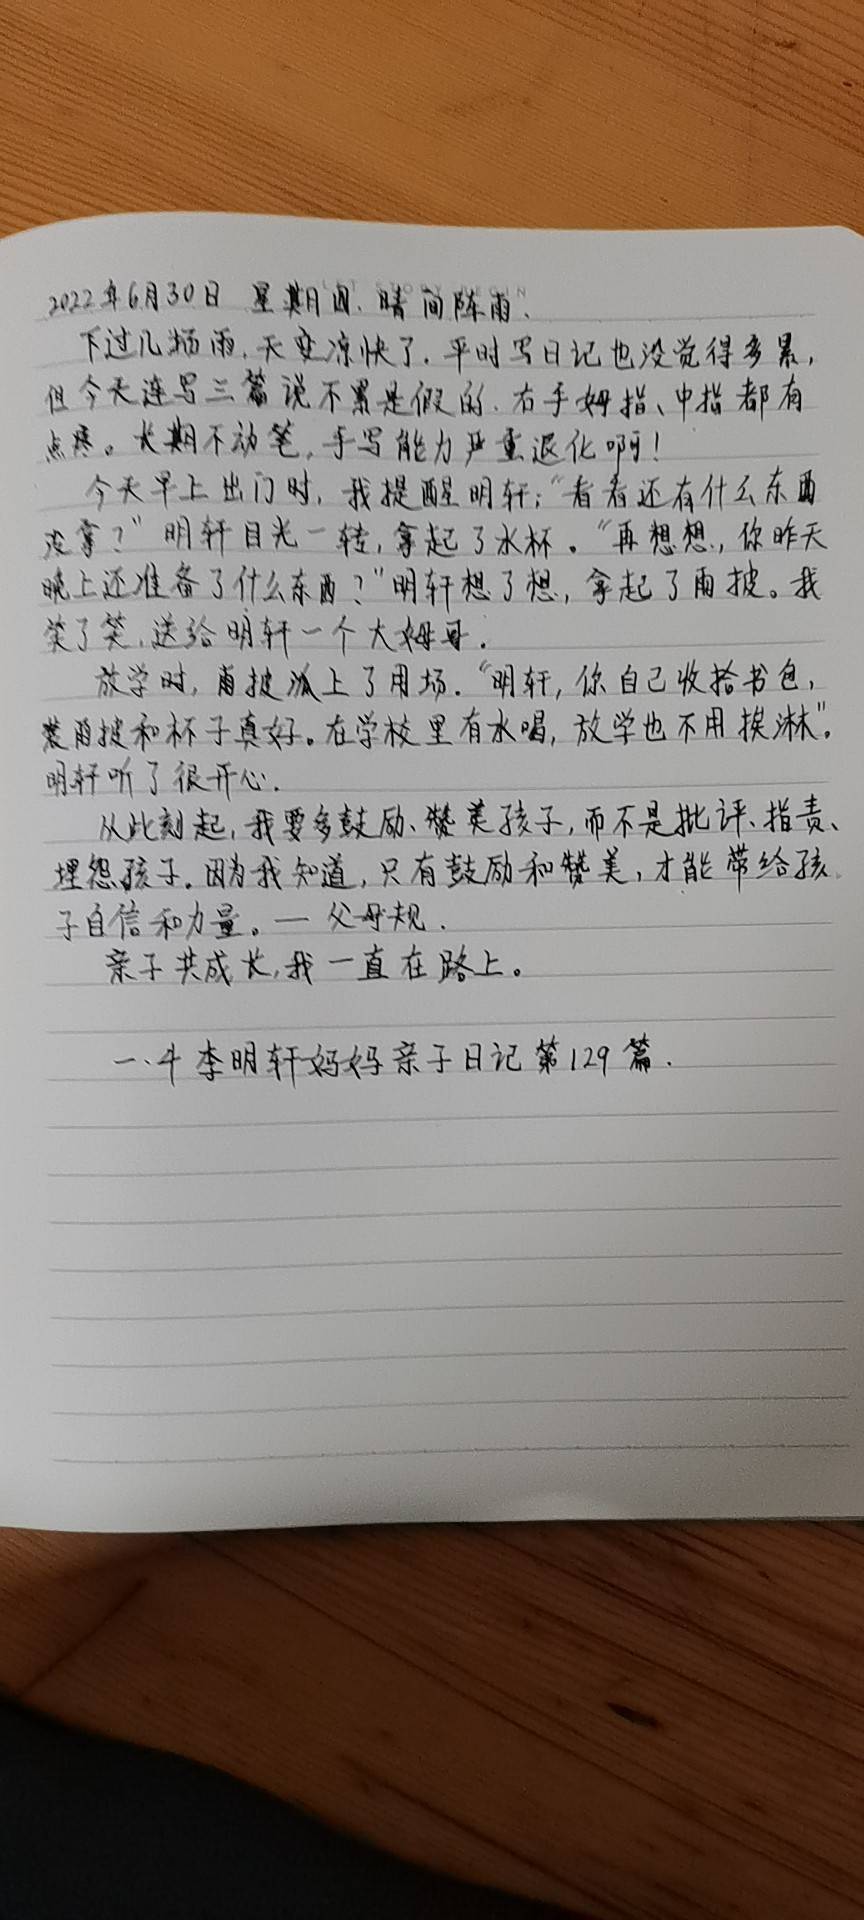 2022年6月30日 星期四.晴间阵雨.
下过几场雨,天变凉快了.平时写日记也没觉得多累,
但今天连写三篇说不累是假的.右手姆指、中指都有
点疼。长期不动笔,手写能力严重退化啊!
今天早上出门时,我提醒明轩:“看看还有什么东西
没拿?”明轩目光一转,拿起了水杯。“再想想,你昨天
晚上还准备了什么东西?”明轩想了想,拿起了雨披。我
笑了笑,送给明轩一个大姆哥.
放学时,雨披派上了用场.“明轩,你自己收拾书包,
装雨披和杯子真好。在学校里有水喝,放学也不用挨淋”。
明轩听了很开心.
从此刻起,我要多鼓励、赞美孩子,而不是批评、指责、
埋怨孩子。因为我知道,只有鼓励和赞美,才能带给孩
子自信和力量。— 父母规.
亲子共成长,我一直在路上。
一.4 李明轩妈妈亲子日记第129篇.